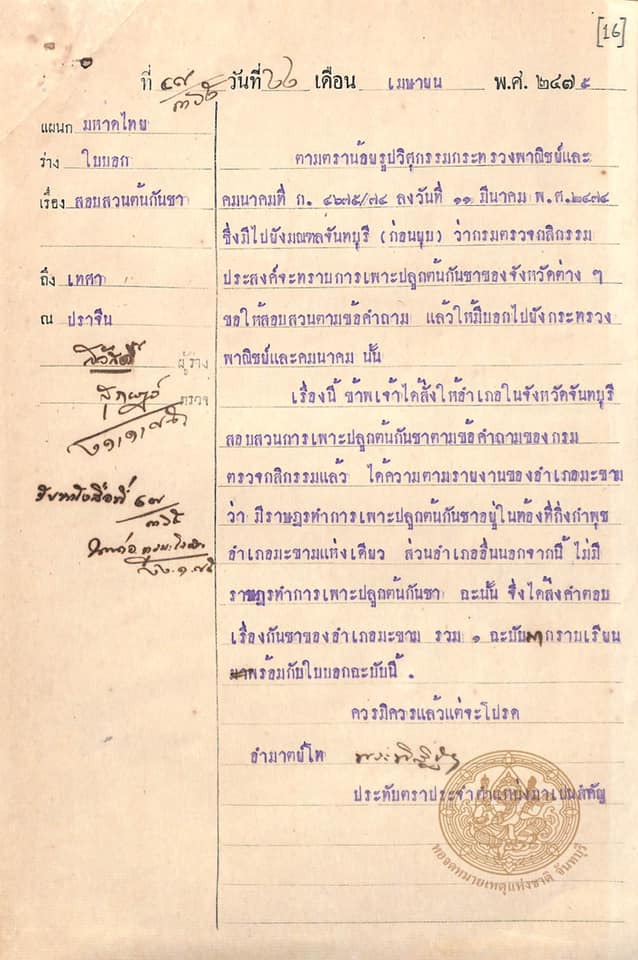 [16]
ที่ ๔๗ วันที่ ๒๒ เดือน เมษายน พ.ศ. ๒๔๗๕
แผนก มหาดไทย
ร่าง ใบบอก
เรื่อง สอบสวนต้นกันชา
ถึง เทศา
ณ ปราจีน
ผู้ร่าง
ตรวจ
รับหนังสือที่ ๖๗
ตามตราน้อยรูปวิศุกรรมกระทรวงพาณิชย์และ
คมนาคมที่ ก. ๔๖๗๕/๗๔ ลงวันที่ ๑๑ มีนาคม พ.ศ.๒๔๗๔
ซึ่งมีไปยังมณฑลจันทบุรี (ก่อนยุบ) ว่ากรมตรวจกสิกรรม
ประสงค์จะทราบการเพาะปลูกต้นกันชาของจังหวัดต่าง ๆ
ขอให้สอบสวนตามข้อคำถาม แล้วให้มีบอกไปยังกระทรวง
พาณิชย์และคมนาคม นั้น
เรื่องนี้ ข้าพเจ้าได้สั่งให้อำเภอในจังหวัดจันทบุรี
สอบสวนการเพาะปลูกต้นกันชาตามข้อคำถามของกรม
ตรวจกสิกรรมแล้ว ได้ความตามรายงานของอำเภอมะขาม
ว่า มีราษฎรทำการเพาะปลูกต้นกันชาอยู่ในท้องที่กิ่งกำพุช
อำเภอมะขามแห่งเดียว ส่วนอำเภออื่นนอกจากนี้ ไม่มี
ราษฎรทำการเพาะปลูกต้นกันชา ฉะนั้น จึ่งได้ส่งคำตอบ
เรื่องกันชาของอำเภอมะขาม รวม ๑ ฉะบับมากราบเรียน
พร้อมกับใบบอกฉะบับนี้ .
ควรมิควรแล้วแต่จะโปรด
อำมาตย์โท
ประทับตราประจำตำแหน่งมาเปนสำคัญ
หอจดหมายเหตุแห่งชาติ จันทบุรี